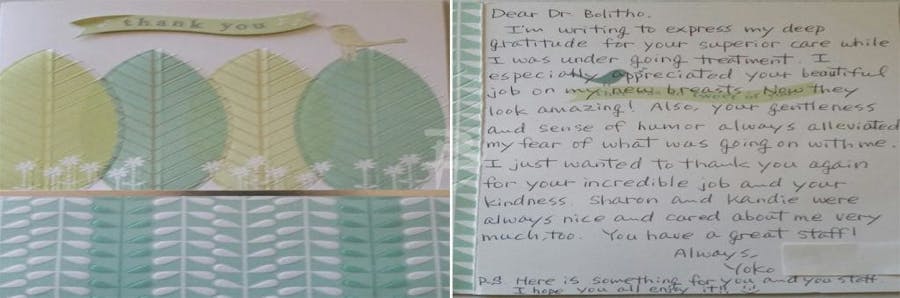 thank you
Dear Dr. Bolitho.
I'm writing to express my deep
gratitude for your superior care while
I was under going treatment. I
especially appreciated your beautiful
job on my new breasts. Now they
look amazing! Also, your gentleness
and sense of humor always alleviated
my fear of what was going on with me.
I just wanted to thank you again
for your incredible job and your
kindness. Sharon and Kandie were
always nice and cared about me very
much, too. You have a great staff!
Always,
Yoko
P.S. Here is something for you and you staff.
I hope you all enjoy it!!